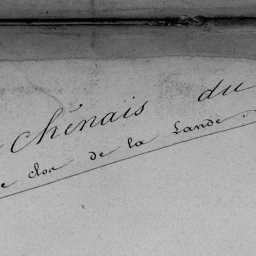 chênais du
e clos de la Lande.